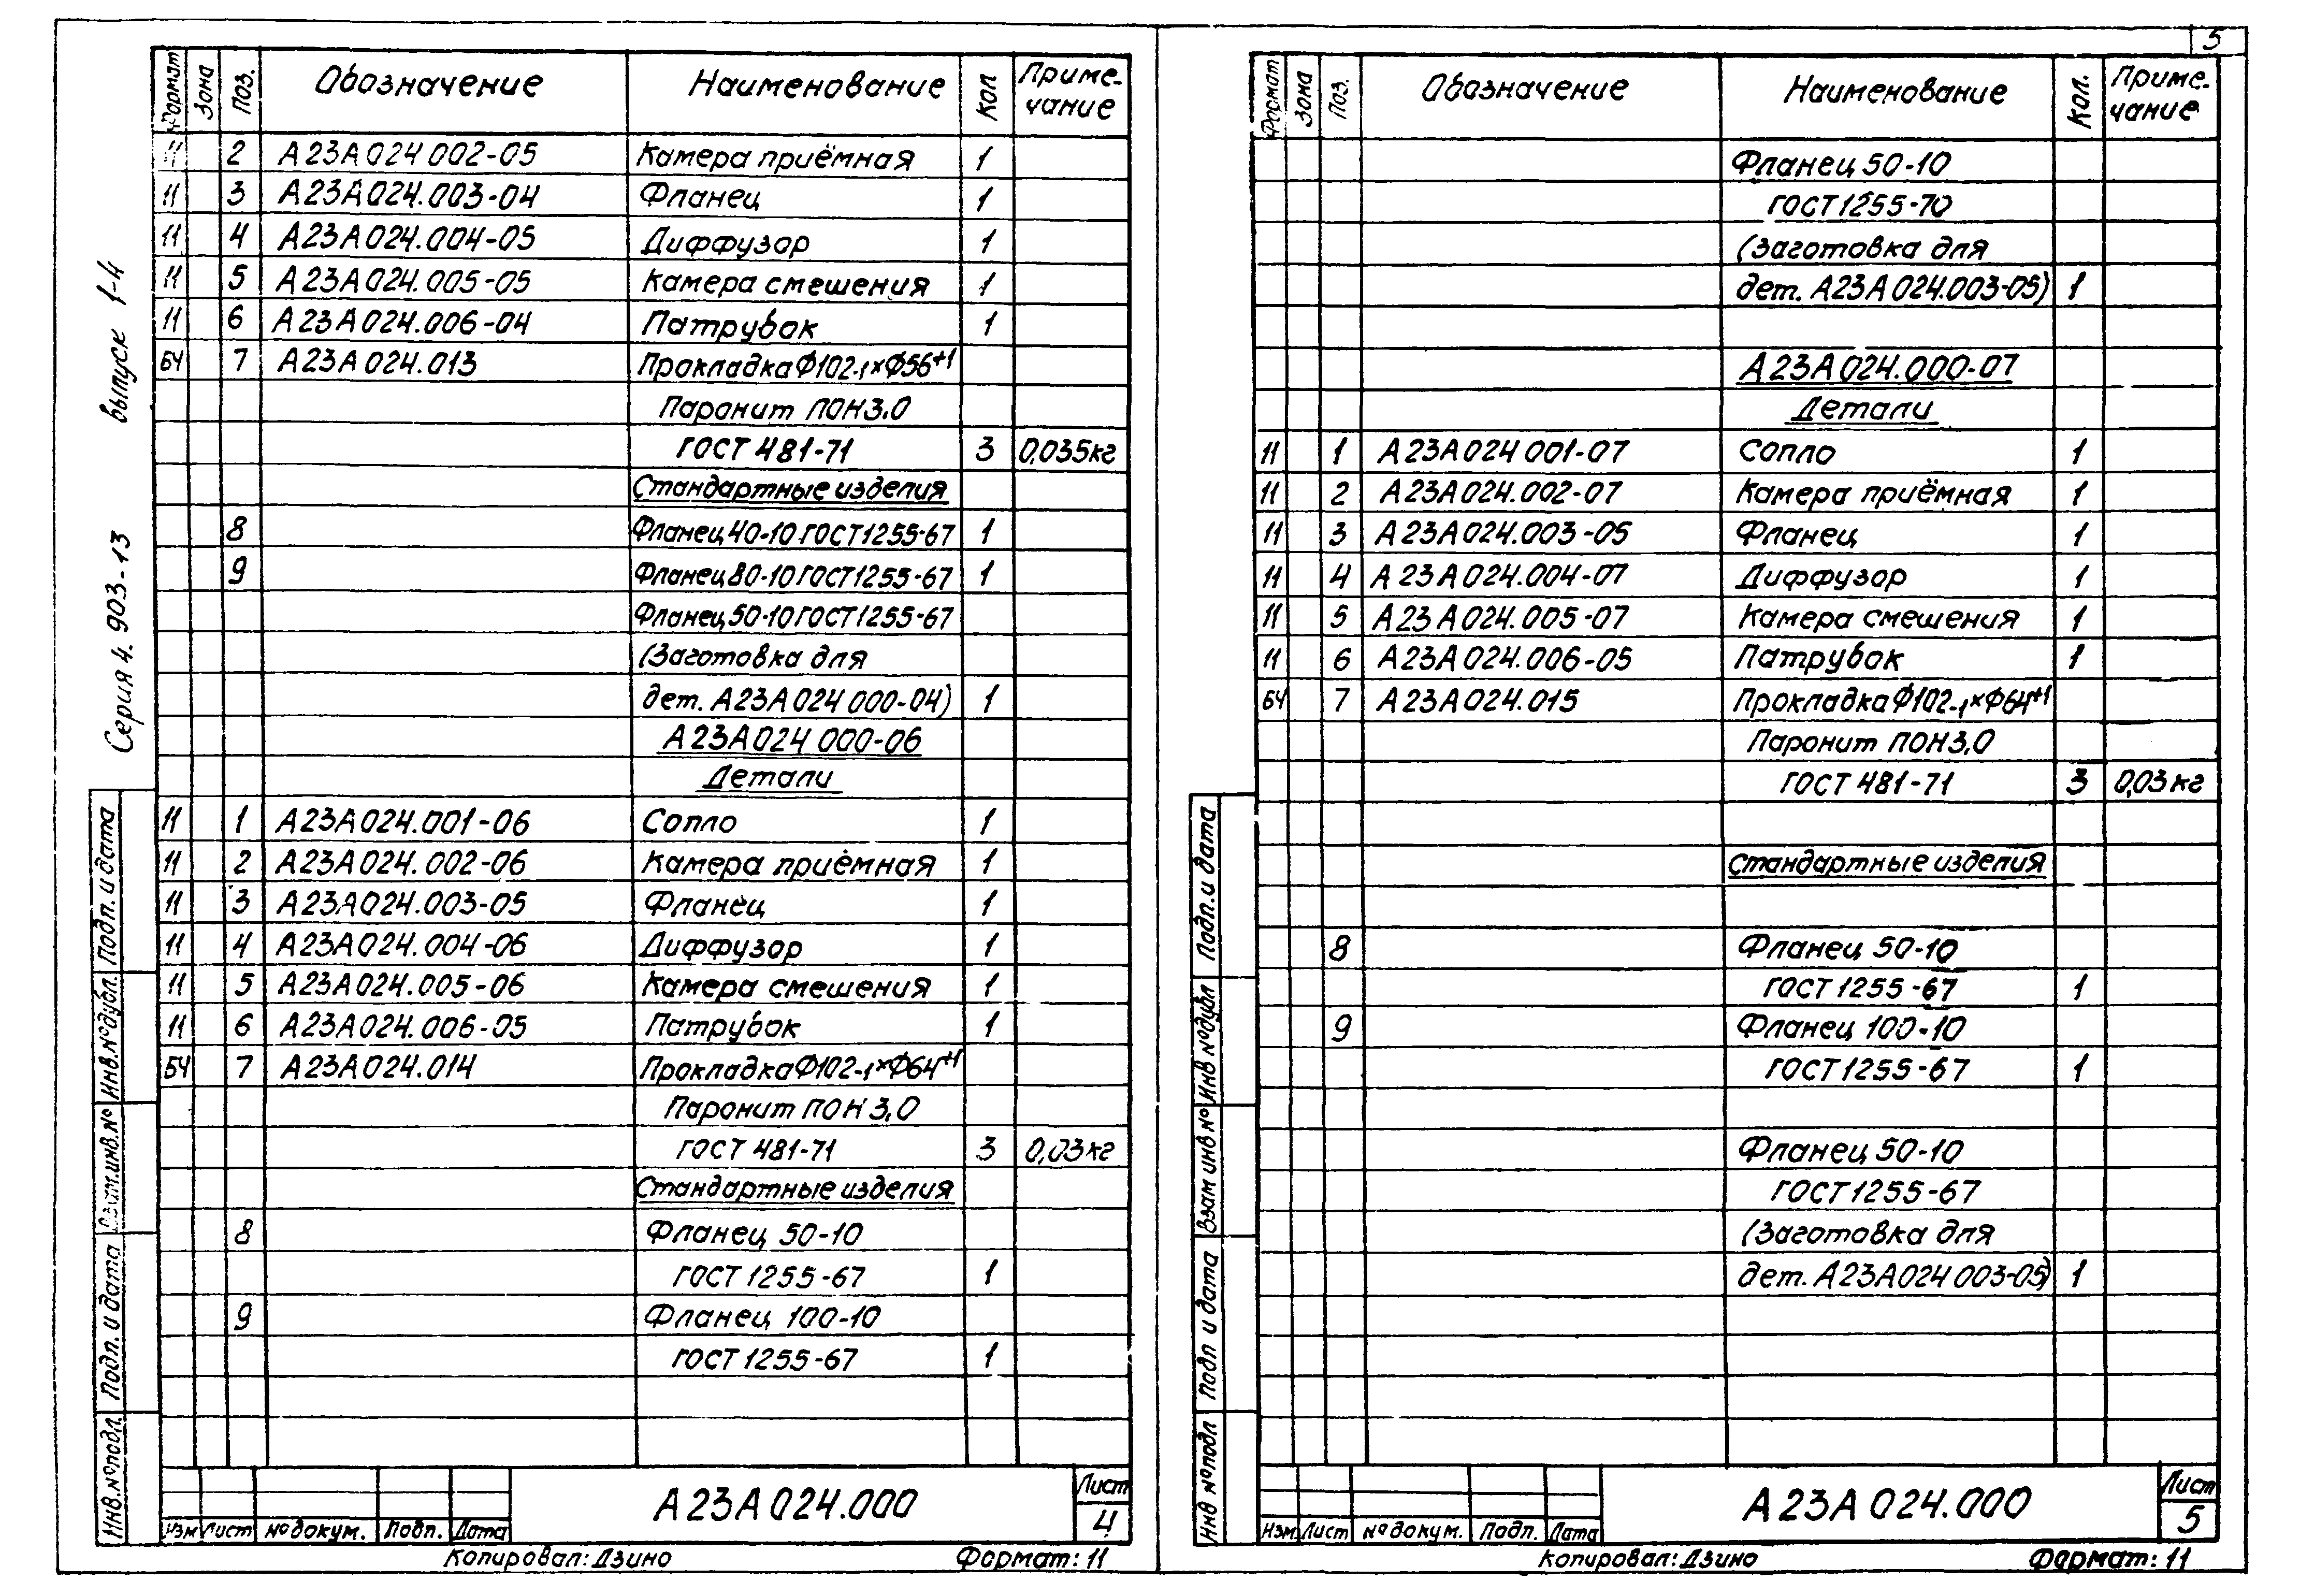 5
Серия 4. 903-13 выпуск 1-4
Формат Зона Поз. Обозначение Наименование Кол Приме-
чание
11 2 А23А024 002-05 Камера приёмная 1
11 3 А23А024.003-04 Фланец 1
11 4 А23А024.004-05 Диффузор 1
11 5 А23А024.005-05 Камера смешения 1
11 6 А23А024.006-04 Патрубок 1
БЧ 7 А23А024.013 Прокладка Ф102-1×Ф56+1
Паронит ПОН3,0
ГОСТ 481-71 3 0,035кг
Стандартные изделия
8 Фланец 40-10 ГОСТ1255-67 1
9 Фланец 80-10 ГОСТ1255-67 1
Фланец 50-10 ГОСТ1255-67
(Заготовка для
дет. А23А024 000-04) 1
А23А024 000-06
Детали
11 1 А23А024.001-06 Сопло 1
11 2 А23А024.002-06 Камера приёмная 1
11 3 А23А024.003-05 Фланец 1
11 4 А23А024.004-06 Диффузор 1
11 5 А23А024.005-06 Камера смешения 1
11 6 А23А024.006-05 Патрубок 1
БЧ 7 А23А024.014 Прокладка Ф102-1×Ф64+1
Паронит ПОН 3,0
ГОСТ 481-71 3 0,03кг
Стандартные изделия
8 Фланец 50-10
ГОСТ 1255-67 1
9 Фланец 100-10
ГОСТ 1255-67 1
Инв.№подл. Подп. и дата Взам.инв.№ Инв.№дубл. Подп. и дата
Изм Лист № докум. Подп. Дата
А23А024.000
Лист
4
Копировал: Дзино Формат: 11
Формат Зона Поз. Обозначение Наименование Кол. Приме-
чание
Фланец 50-10
ГОСТ1255-70
(Заготовка для
дет. А23А024.003-05) 1
А23А024.000-07
Детали
11 1 А23А024 001-07 Сопло 1
11 2 А23А024.002-07 Камера приёмная 1
11 3 А23А024.003-05 Фланец 1
11 4 А23А024.004-07 Диффузор 1
11 5 А23А024.005-07 Камера смешения 1
11 6 А23А024.006-05 Патрубок 1
БЧ 7 А23А024.015 Прокладка Ф102-1×Ф64+1
Паронит ПОН3,0
ГОСТ 481-71 3 0,03кг
Стандартные изделия
8 Фланец 50-10
ГОСТ 1255-67 1
9 Фланец 100-10
ГОСТ1255-67 1
Фланец 50-10
ГОСТ1255-67
(Заготовка для
дет. А23А024 003-05) 1
Инв №подл Подп и дата Взам инв № Инв №дубл Подп. и дата
Изм Лист № докум. Подп. Дата
А23А024.000
Лист
5
Копировал: Дзино Формат: 11